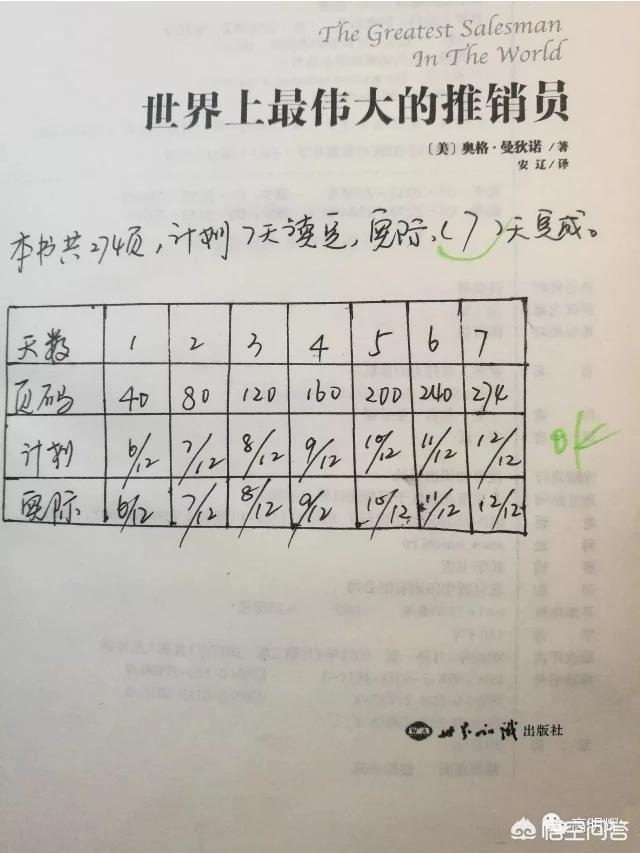 The Greatest Salesman
In The World
世界上最伟大的推销员
〔美〕奥格·曼狄诺／著
安辽／译
本书共274页，计划7天读完，实际（7）天完成。
天数 1 2 3 4 5 6 7
页码 40 80 120 160 200 240 274
计划 6/12 7/12 8/12 9/12 10/12 11/12 12/12
实际 6/12 7/12 8/12 9/12 10/12 11/12 12/12
ok
WA 世界知识出版社
悟空问答